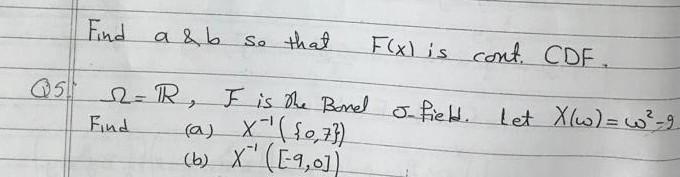 Find a & b so that F(x) is cont. CDF.
Q5. Ω = ℝ, F is the Borel σ-field. Let X(ω) = ω²-9
Find (a) X⁻¹({0,7})
(b) X⁻¹([-9,0])